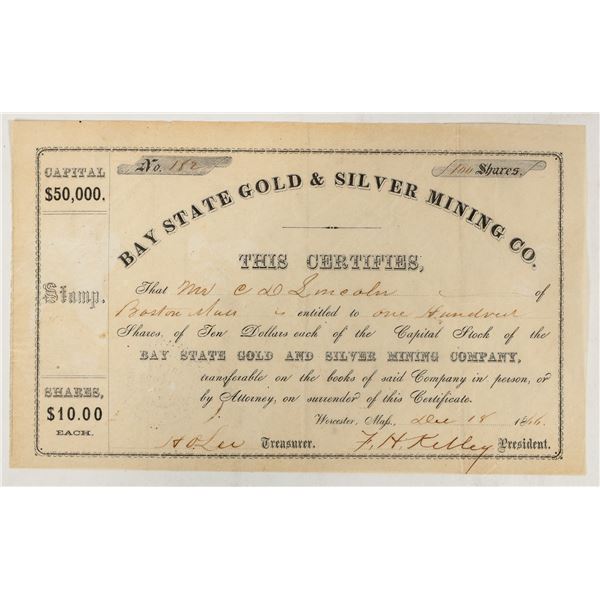 CAPITAL
$50,000.
Stamp.
SHARES,
$10.00
EACH.
No. 182
100 Shares.
BAY STATE GOLD & SILVER MINING CO.
THIS CERTIFIES,
That Mr C D Lincoln of
Boston Mass is entitled to one Hundred
Shares, of Ten Dollars each of the Capital Stock of the
BAY STATE GOLD AND SILVER MINING COMPANY,
transferable on the books of said Company in person, or
by Attorney, on surrender of this Certificate.
Worcester, Mass, Dec 18 1866.
A O Lee Treasurer. F. H. Kelley President.